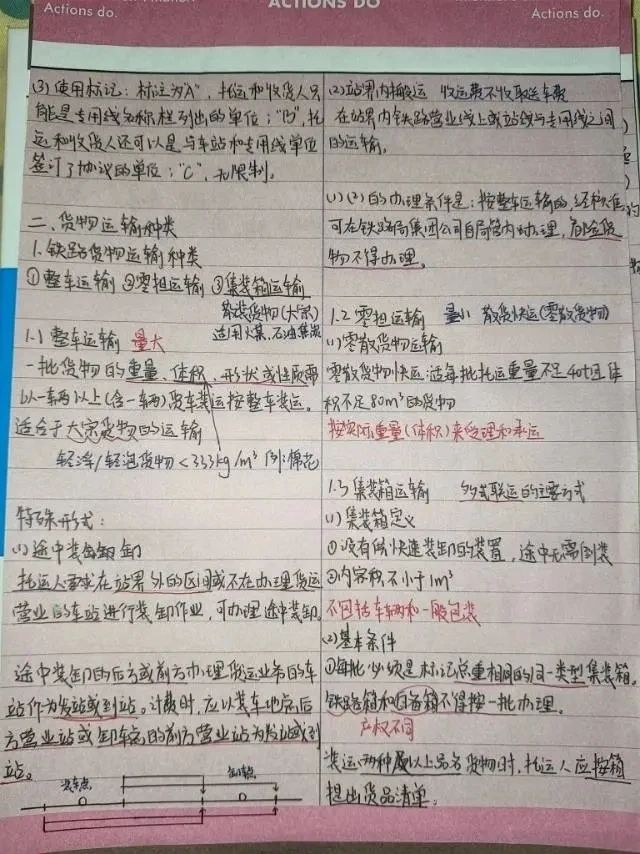 Actions do.
ACTIONS DO
Actions do.
(3)使用标记：标注为"A"，托运和收货人只
能是专用线名称栏列出的单位；"B"，托
运和收货人还可以是与车站和专用线单位
签订了协议的单位；"C"，无限制。
二、货物运输种类
1.铁路货物运输种类
①整车运输 ②零担运输 ③集装箱运输
散装货物(大宗)
适用火煤，石油焦炭
1.1 整车运输 量大
一批货物的重量、体积、形状或性质需
以一车两以上(含一辆)货车装运按整车装运。
适合于大宗货物的运输
轻浮/轻泡货物<333kg/m³ 例:棉花
特殊形式：
(1)途中装卸
托运人要求在站界外的区间或不在办理货运
营业的车站进行装卸作业，可办理途中装卸。
途中装卸的后方或前方办理货运业务的车
站作为发站或到站。计费时，应以装车地点后
方营业站或卸车点的前方营业站为发站或到
站。
装车点
卸车点
(2)站界内搬运 收运费不收取送车费
在站界内铁路营业线上或站线与专用线之间
的运输。
(1)(2)的办理条件是：按整车运输的，经批准
可在铁路局集团公司自局管内办理，危险货
物不得办理。
1.2 零担运输 量小 散货快运(零散货物)
(1)零散货物运输
零散货物快运：适每批托运重量不足40t且体
积不足80m³的货物
按实际重量(体积)来受理和承运
1.3 集装箱运输 多式联运的主要方式
(1)集装箱定义
①设有供快速装卸的装置，途中无需倒装
②内容积不小于1m³
不包括车辆和一般包装
(2)基本条件
①每批必须是标记总重相同的同一类型集装箱。
铁路箱和自备箱不得按一批办理。
产权不同
装运两种及以上品名货物时，托运人应按箱
提出货品清单。